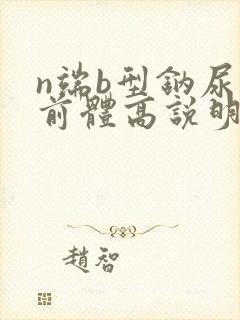 n端b型鈉尿
前體高說明
趙智